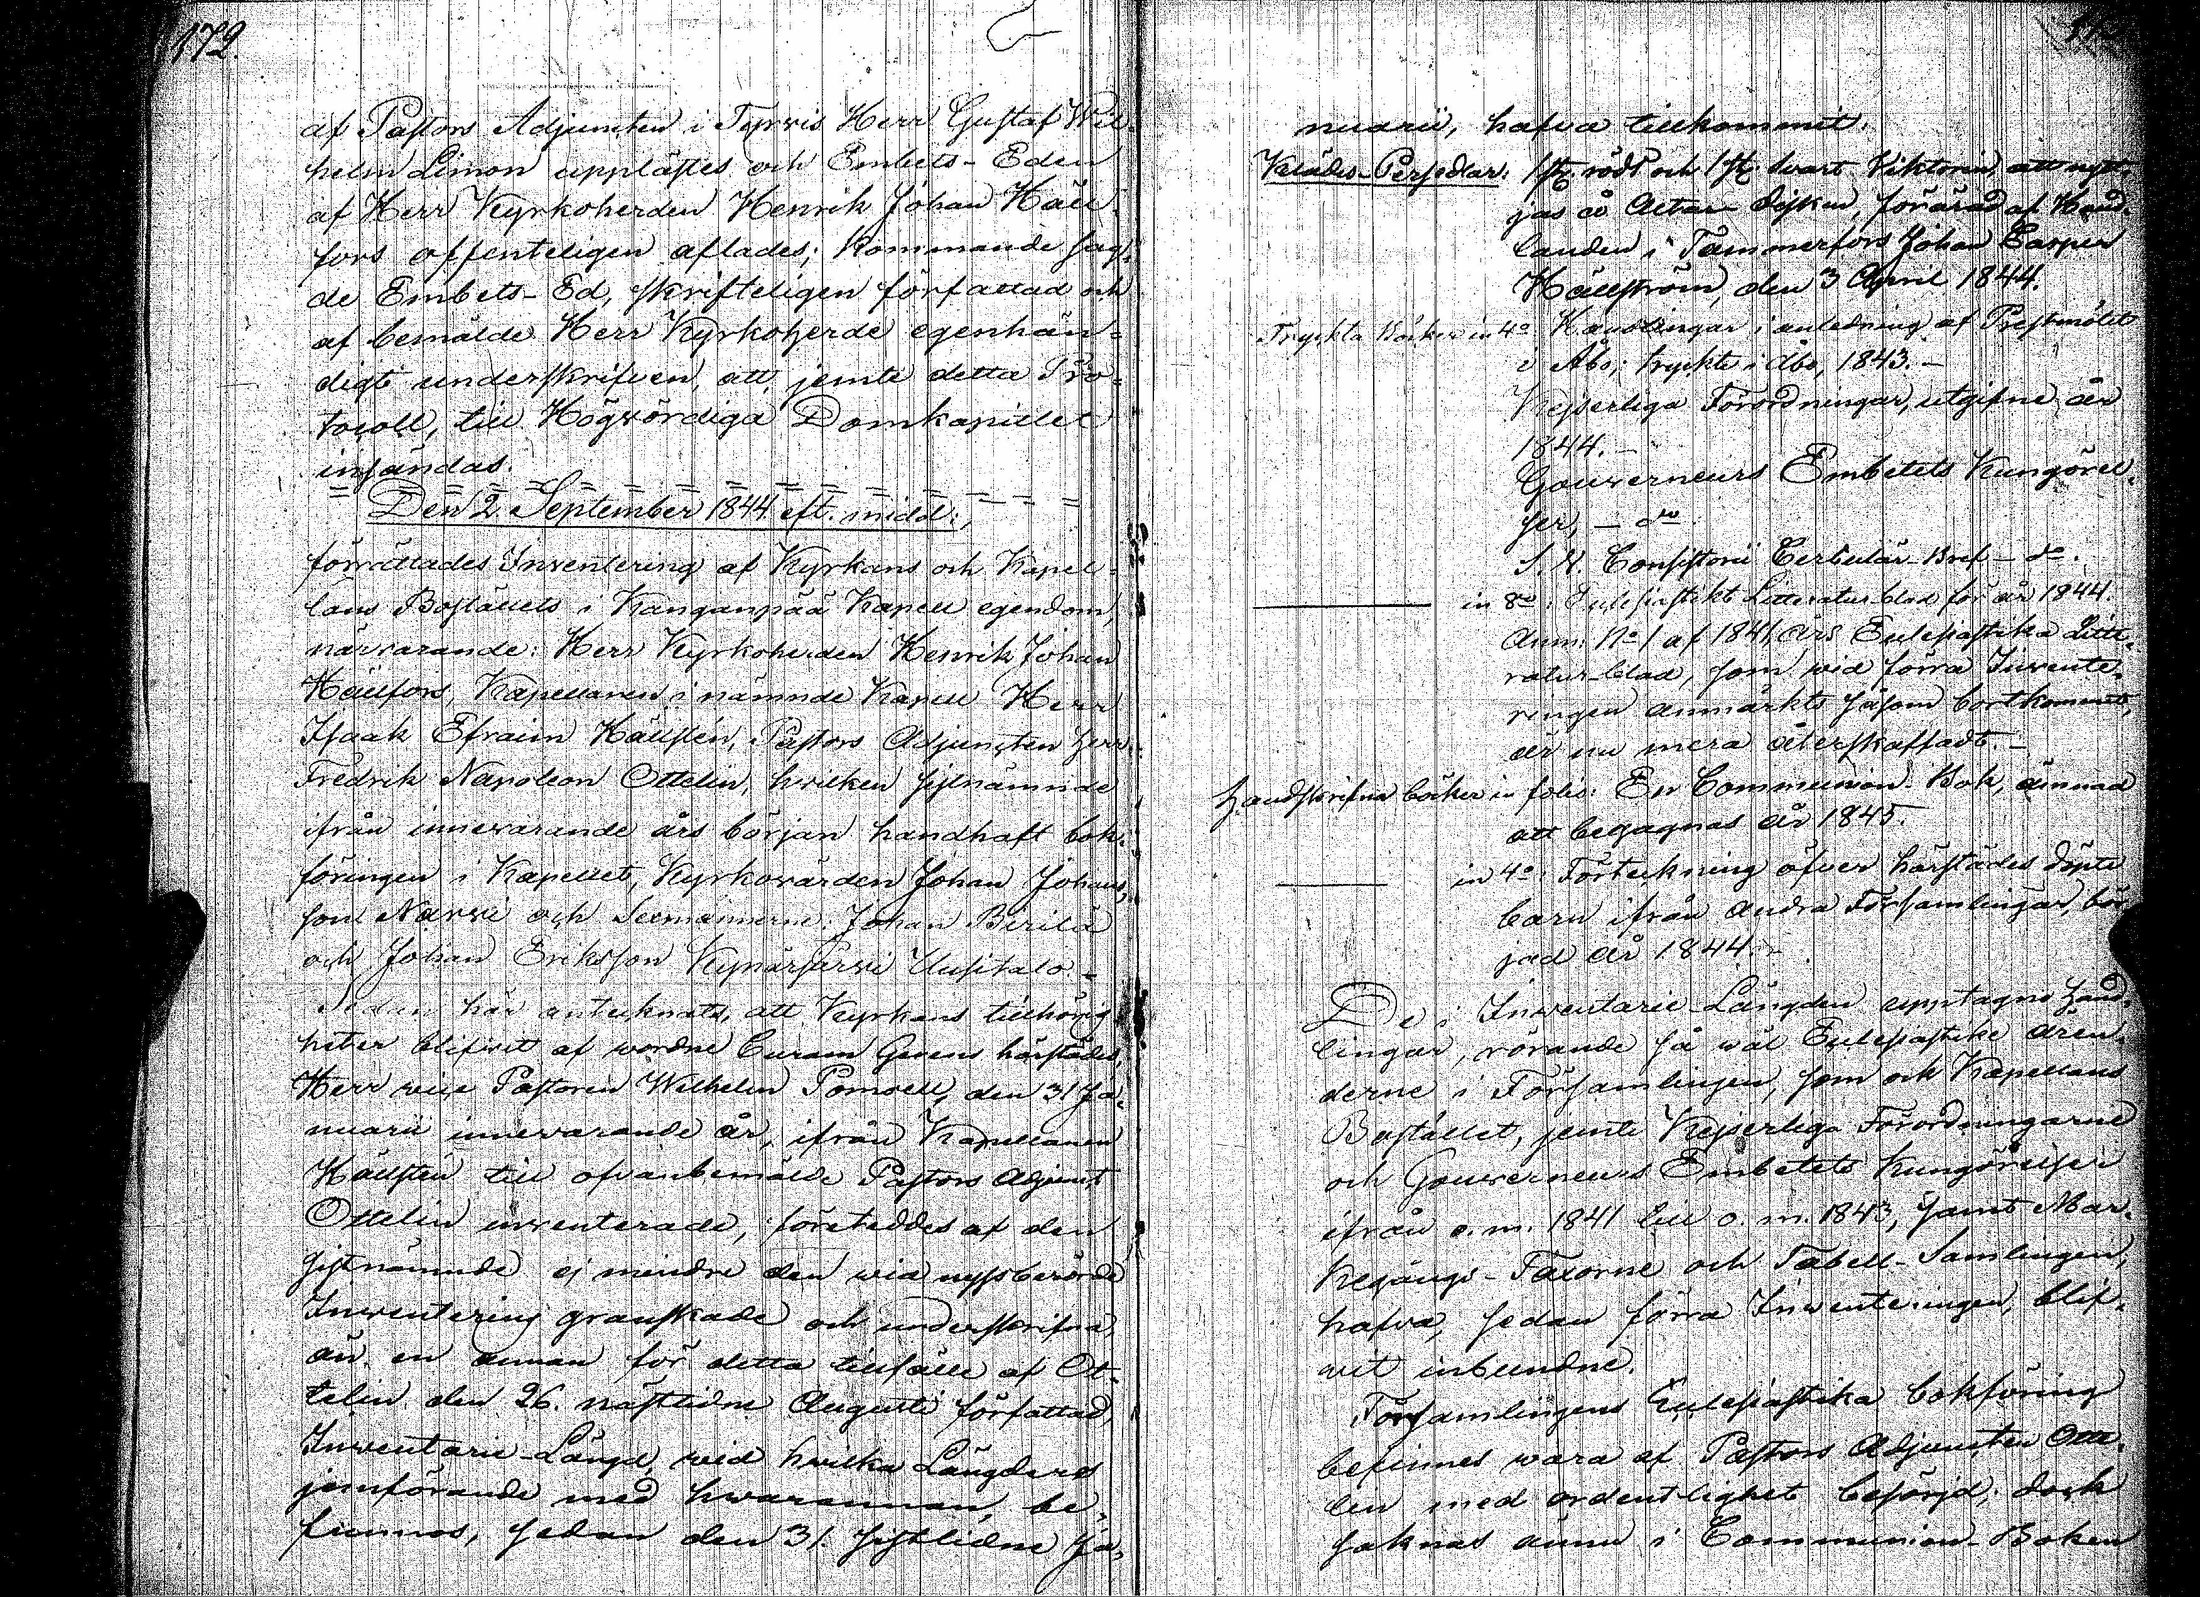 172.
af Pastors Adjuncten i Tyrvis Herr Gustaf Wil-
helm Limon upplästes och Embets-Eden
af Herr Kyrkoherden Henrik Johan Häll-
fors offenteligen aflades; kommande sag-
de Embets-Ed, skrifteligen författad och
af bemälde Herr Kyrkoherde egenhän-
digt underskrifven, att jemte detta Pro-
tocoll, till Högvördiga Domkapitlet
insändas.
Den 2. September 1844 eft. midd:,
förrättades Inventering af Kyrkans och Kapel-
lans Boställets i Kanganpää Kapell egendom,
närvarande: Herr Kyrkoherden Henrik Johan
Hällfors, Kapellanen i nämnde Kapell Herr
Isaak Efraim Hällstén, Pastors Adjuncten Herr
Fredrik Napoleon Ottelin, hvilken sistnämnde
ifrån innevarande års början handhaft bok-
föringen i Kapellet, Kyrkovärden Johan Johans-
son Narvi och Sexmännerne: Johan Berilä
och Johan Eriksson Kynäsjärvi Uusitalo.-
Sedan här antecknats, att Kyrkans tillhörig-
heter blifvit af vordne Curam Gerens härstädes,
Herr vice Pastoren Wilhelm Pomoell, den 31 Ja-
nuarii innevarande år, ifrån Kapellanen
Hällstén till ofvanbemälde Pastors Adjunct
Ottelin inventerade, företeddes af den
sistnämnde ej mindre den vid nyssberörde
Inventering granskade och underskrifna,
än en annan för detta tillfälle af Ot-
telin den 26. nästledne Augusti författad,
Inventarie-Längd, vid hvilka Längders
jemförande med hvarannan, be-
funnos, sedan den 31. sistlidne Ja-
nuarii, hafva tillkommit.
Klädes-Persedlar: 1 st. rödt och 1 st. svart Viktorin, att nytt-
jas å Altar-Disken, förärad af Hand-
landen i Tammerfors Johan Casper
Hällström, den 3 April 1844.
Tryckta Böcker in 4o Handlingar i anledning af Prestmötet
i Åbo; tryckte i Åbo, 1843.-
Kejserliga Förordningar, utgifne år
1844.-
Gouverneurs Embetets Kungörel-
ser, - do
S. V. Consistorii Cerkulär-Bref - do.
in 8o: Ecklesiastikt Litteratur-blad för år 1844.
Anm: No 1 af 1841 års Ecklesiastika Litte-
ratur-blad, som vid förra Invente-
ringen anmärkts såsom bortkommet,
är nu mera återskaffadt.-
Handskrifna böcker in folio: En Communion-Bok, ämnad
att begagnas år 1845.
in 4o: Förteckning öfver härstädes döpte
barn ifrån andra Församlingar, bör-
jad år 1844.-
De i Inventarie-Längden upptagne Hand-
lingar, rörande så väl Ecklesiastike ären-
derne i Församlingen, som ock Kapellans
Bostället, jemte Kejserliga Förordningarne
och Gouverneurs Embetets Kungörelser
ifrån o. m. 1841 till o. m. 1843, samt Mar-
kegångs-Taxorne och Tabell-Samlingen,
hafva, sedan förra Inventeringen, blif-
vit inbundne.
Församlingens Ecklesiastika bokföring
befinnes vara af Pastors Adjuncten Otte-
lin med ordentlighet besörjd; dock
saknas ännu i Communion-Boken